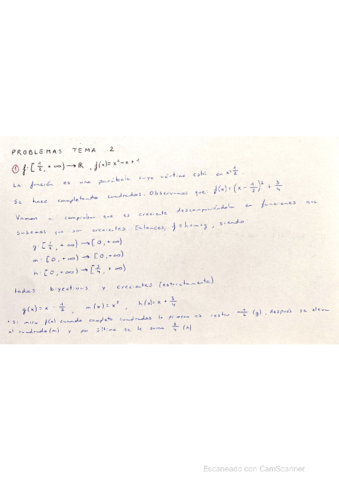 PROBLEMAS TEMA 2
① f: [1/2, +∞) → R, f(x) = x² - x + 1
La función es una parábola cuyo vértice está en x = 1/2
Se hace completando cuadrados. Observamos que f(x) = (x - 1/2)² + 3/4
Vamos a comprobar que es creciente descomponiéndola en funciones que
sabemos que son crecientes. Entonces, f = h∘m∘g, siendo
g: [1/2, +∞) → [0, +∞)
m: [0, +∞) → [0, +∞)
h: [0, +∞) → [3/4, +∞)
todas biyectivas y crecientes (estrictamente)
g(x) = x - 1/2, m(x) = x², h(x) = x + 3/4
* Si miro f(x) cuando completo cuadrados lo primero es restar 1/2 (g), después se eleva
al cuadrado (m) y por último se le suma 3/4 (h)
Escaneado con CamScanner